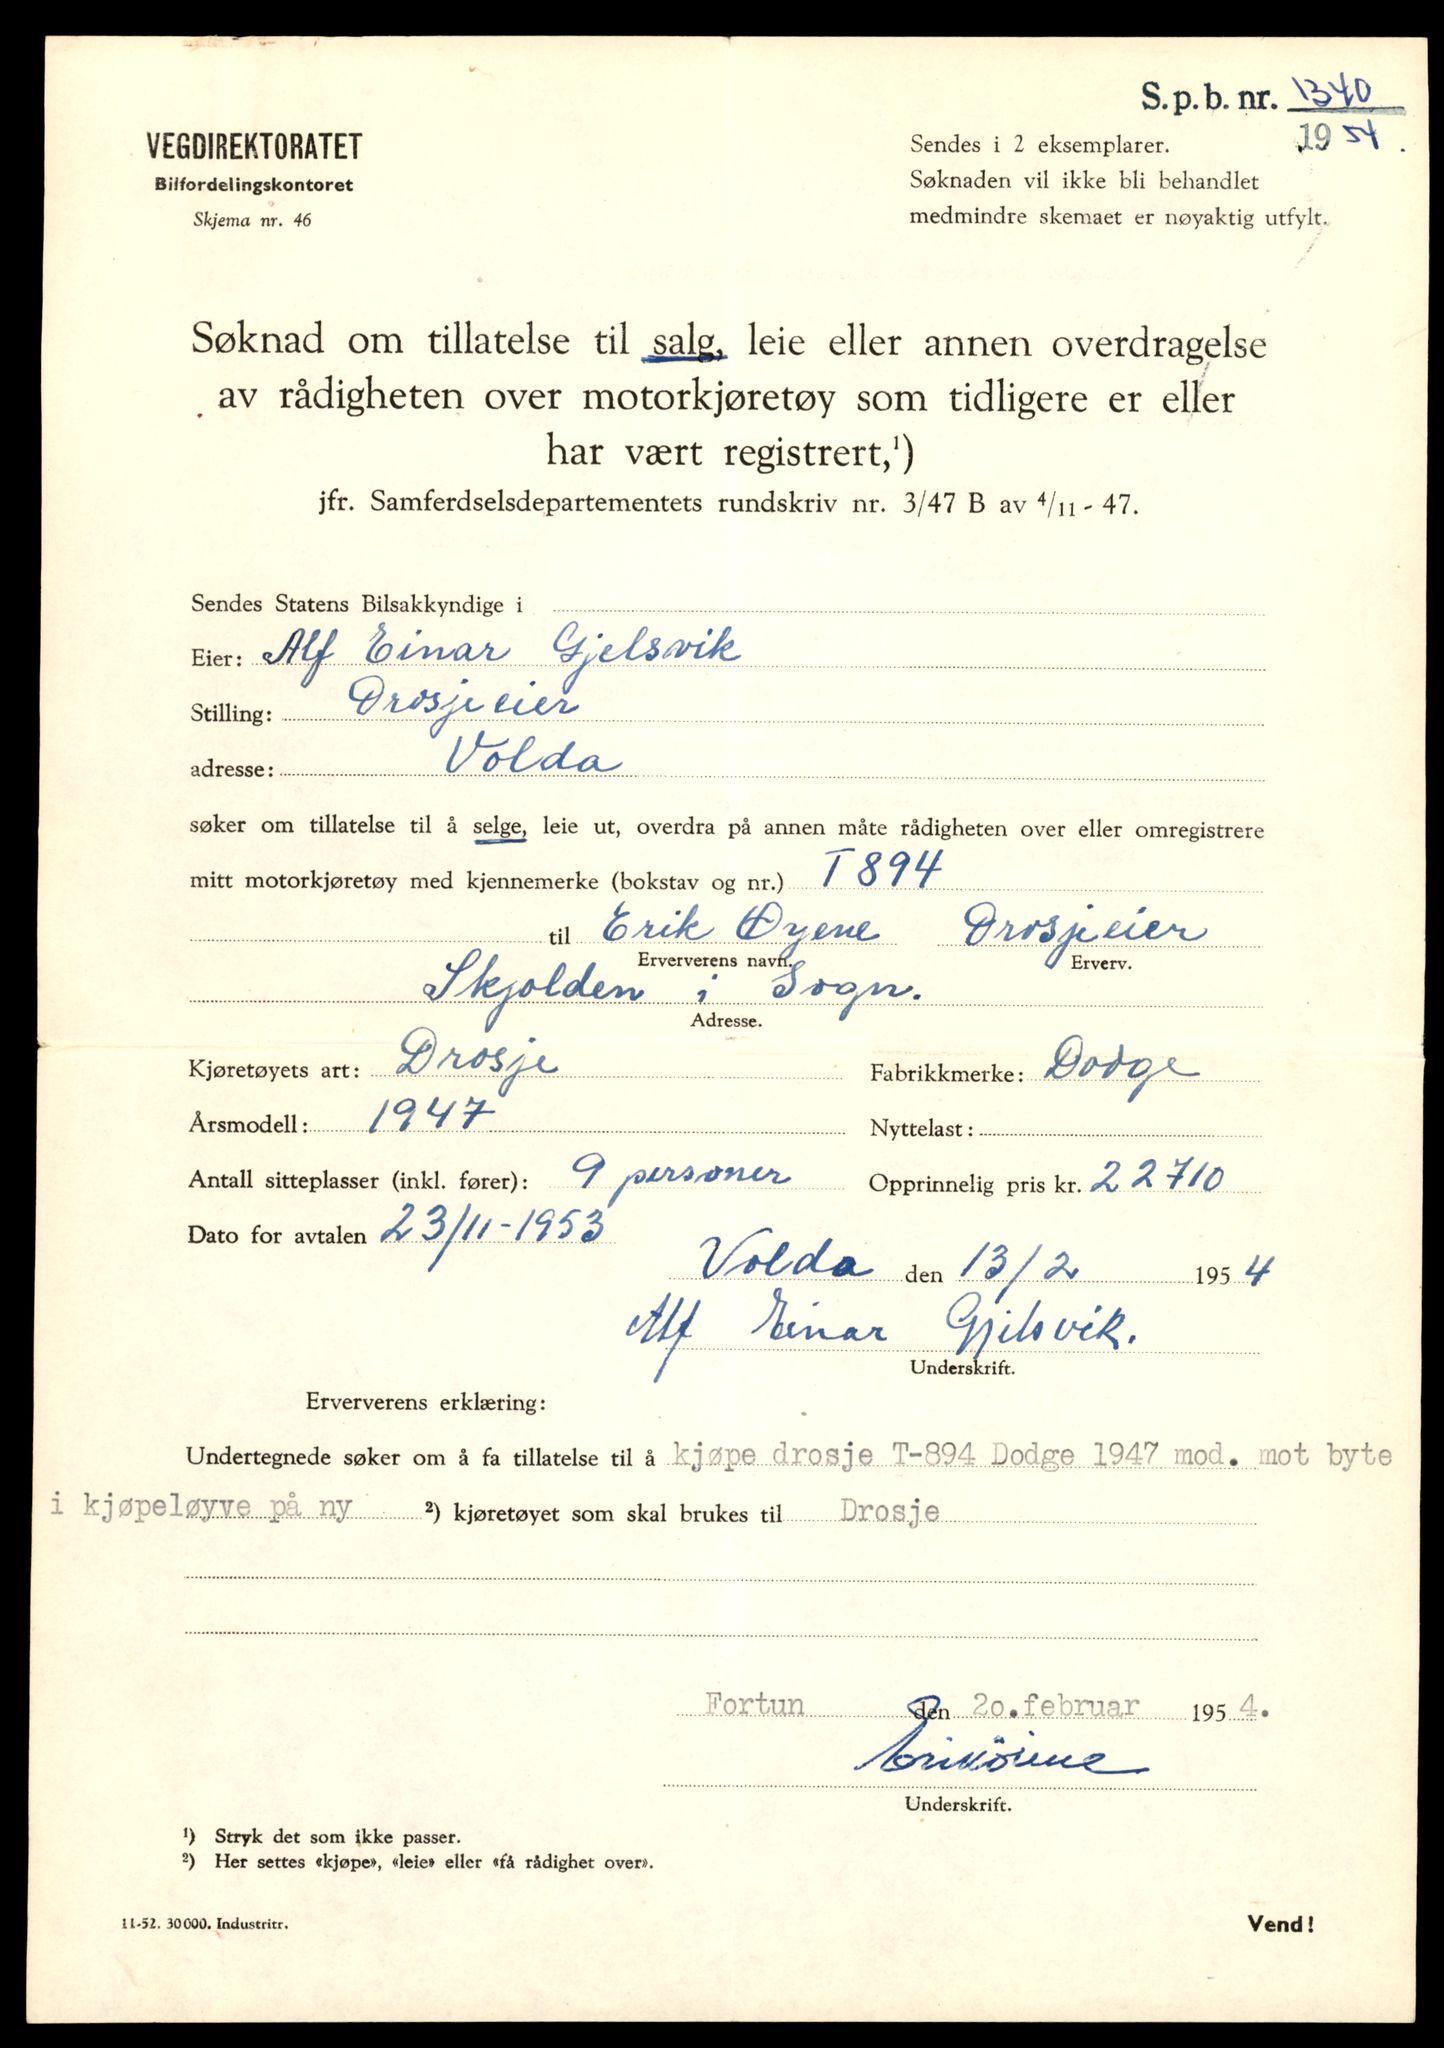 S.p.b. nr. 1340
1954.
VEGDIREKTORATET
Bilfordelingskontoret
Skjema nr. 46
Sendes i 2 eksemplarer.
Søknaden vil ikke bli behandlet
medmindre skemaet er nøyaktig utfylt.
Søknad om tillatelse til salg, leie eller annen overdragelse
av rådigheten over motorkjøretøy som tidligere er eller
har vært registrert,¹)
jfr. Samferdselsdepartementets rundskriv nr. 3/47 B av 4/11 - 47.
Sendes Statens Bilsakkyndige i
Eier: Alf Einar Gjelsvik
Stilling: Drosjeeier
adresse: Volda
søker om tillatelse til å selge, leie ut, overdra på annen måte rådigheten over eller omregistrere
mitt motorkjøretøy med kjennemerke (bokstav og nr.) T 894
til Erik Øyene Drosjeeier
Erververens navn. Erverv.
Skjolden i Sogn.
Adresse.
Kjøretøyets art: Drosje Fabrikkmerke: Dodge
Årsmodell: 1947 Nyttelast:
Antall sitteplasser (inkl. fører): 9 personer Opprinnelig pris kr. 22710
Dato for avtalen 23/11-1953
Volda den 13/2 1954
Alf Einar Gjelsvik.
Underskrift.
Erververens erklæring:
Undertegnede søker om å fa tillatelse til å kjøpe drosje T-894 Dodge 1947 mod. mot byte
i kjøpeløyve på ny ²) kjøretøyet som skal brukes til Drosje
Fortun den 2o.februar 1954.
Erik Öiene
Underskrift.
¹) Stryk det som ikke passer.
²) Her settes «kjøpe», «leie» eller «få rådighet over».
11-52. 30000. Industritr.
Vend!